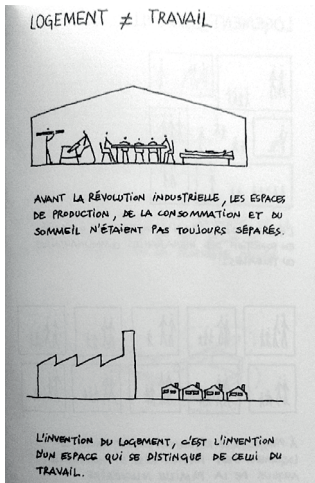 LOGEMENT ≠ TRAVAIL
AVANT LA RÉVOLUTION INDUSTRIELLE, LES ESPACES
DE PRODUCTION, DE LA CONSOMMATION ET DU
SOMMEIL N'ÉTAIENT PAS TOUJOURS SÉPARÉS.
L'INVENTION DU LOGEMENT, C'EST L'INVENTION
D'UN ESPACE QUI SE DISTINGUE DE CELUI DU
TRAVAIL.